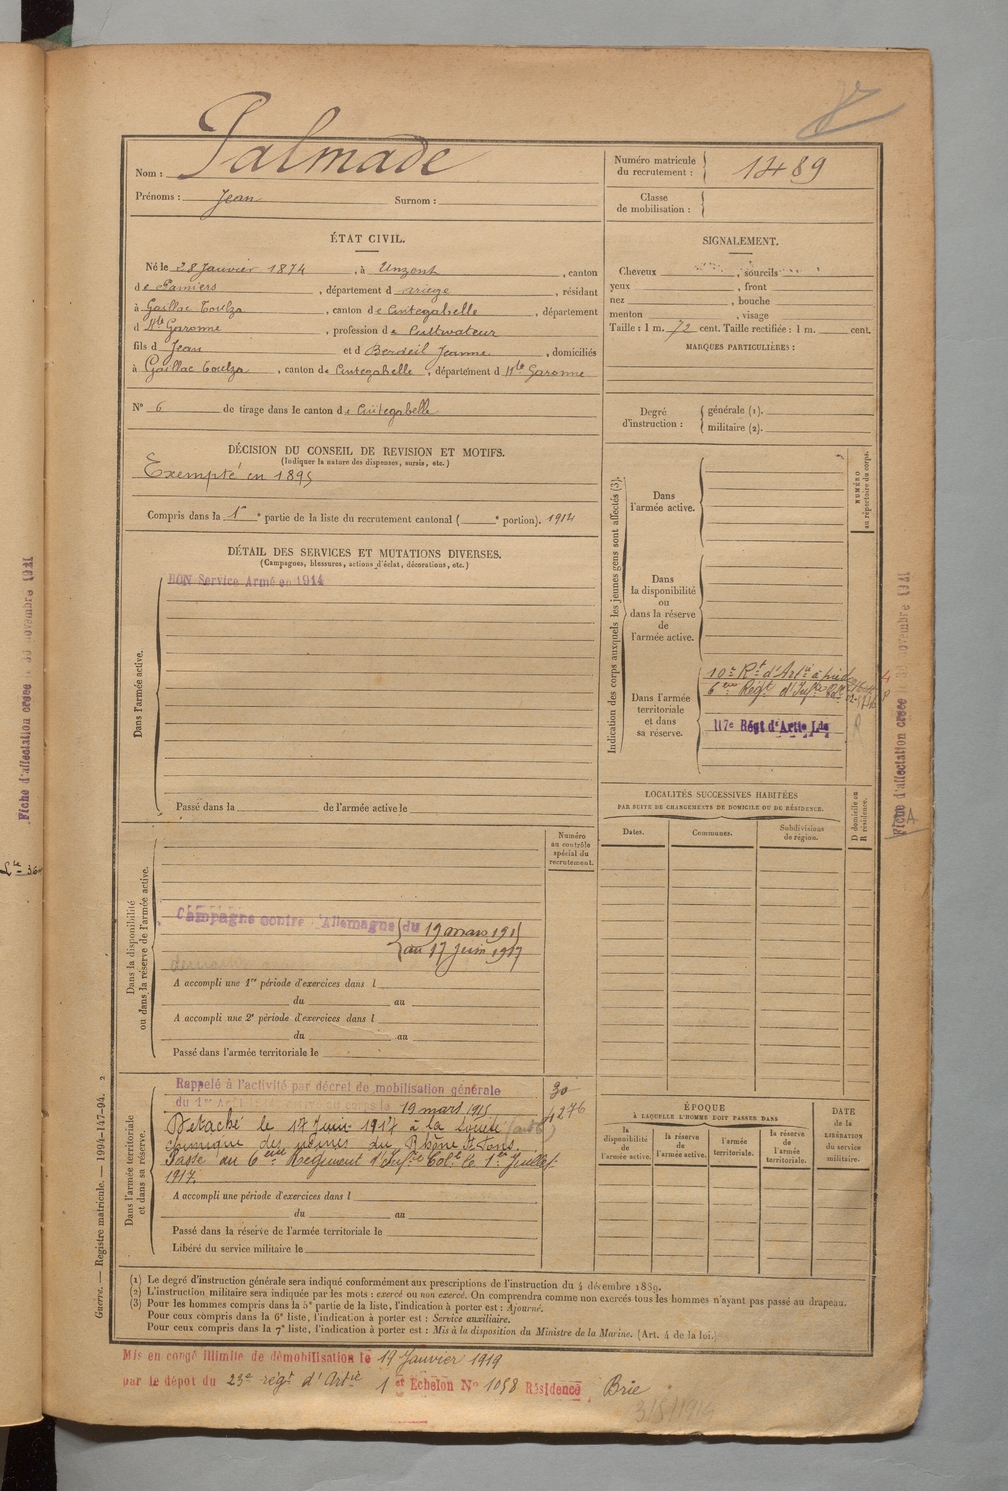 Nom : Palmade
Prénoms : Jean Surnom :
Numéro matricule du recrutement : 1489
Classe de mobilisation :
ÉTAT CIVIL.
Né le 28 Janvier 1874, à Unzent, canton
de Pamiers, département d'Ariège, résidant
à Gaillac Toulza, canton de Cintegabelle, département
d Hte Garonne, profession de Cultivateur
fils d Jean et d Berdeil Jeanne, domiciliés
à Gaillac Toulza, canton de Cintegabelle, département d Hte Garonne
N° 6 de tirage dans le canton de Cintegabelle
SIGNALEMENT.
Cheveux , sourcils
yeux , front
nez , bouche
menton , visage
Taille : 1 m. 72 cent. Taille rectifiée : 1 m. cent.
MARQUES PARTICULIÈRES :
Degré d'instruction : générale (1).
militaire (2).
DÉCISION DU CONSEIL DE REVISION ET MOTIFS.
(Indiquer la nature des dispenses, sursis, etc.)
Exempté en 1895
Compris dans la 1re partie de la liste du recrutement cantonal ( e portion). 1914
DÉTAIL DES SERVICES ET MUTATIONS DIVERSES.
(Campagnes, blessures, actions d'éclat, décorations, etc.)
BON Service Armé en 1914
Dans l'armée active.
Passé dans la de l'armée active le
Indication des corps auxquels les jeunes gens sont affectés (3).
NUMÉRO au répertoire du corps.
Dans l'armée active.
Dans la disponibilité ou dans la réserve de l'armée active.
Dans l'armée territoriale et dans sa réserve.
10e Rt d'Artie à pied
6ème Régt d'Infie Colle
117e Régt d'Artie Lde
LOCALITÉS SUCCESSIVES HABITÉES
PAR SUITE DE CHANGEMENTS DE DOMICILE OU DE RÉSIDENCE.
Dates. Communes. Subdivisions de région.
D domicile ou R résidence.
Numéro au contrôle spécial du recrutement.
Dans la disponibilité ou dans la réserve de l'armée active.
Campagne contre l'Allemagne du 19 mars 1915
au 17 Juin 1917
A accompli une 1re période d'exercices dans l
du au
A accompli une 2e période d'exercices dans l
du au
Passé dans l'armée territoriale le
Dans l'armée territoriale et dans sa réserve.
Rappelé à l'activité par décret de mobilisation générale
du 1er Août 19 mars 1915
Détaché le 17 Juin 1917 à la Société
chimique des usines du Rhône St Fons.
Passé au 6ème Régiment d'Infie Colle le 1er Juillet
1917.
30
4276
A accompli une période d'exercices dans l
du au
Passé dans la réserve de l'armée territoriale le
Libéré du service militaire le
ÉPOQUE
À LAQUELLE L'HOMME DOIT PASSER DANS
la disponibilité de l'armée active.
la réserve de l'armée active.
l'armée territoriale.
la réserve de l'armée territoriale.
DATE de la LIBÉRATION du service militaire.
(1) Le degré d'instruction générale sera indiqué conformément aux prescriptions de l'instruction du 4 décembre 1889.
(2) L'instruction militaire sera indiquée par les mots : exercé ou non exercé. On comprendra comme non exercés tous les hommes n'ayant pas passé au drapeau.
(3) Pour les hommes compris dans la 5e partie de la liste, l'indication à porter est : Ajourné.
Pour ceux compris dans la 6e liste, l'indication à porter est : Service auxiliaire.
Pour ceux compris dans la 7e liste, l'indication à porter est : Mis à la disposition du Ministre de la Marine. (Art. 4 de la loi.)
Mis en congé illimité de démobilisation le 19 Janvier 1919
par le dépôt du 23e régt d'Artie 1er Echelon No 1058 Résidence Brie
Guerre. — Registre matricule. — 1994-147-94. 2
Fiche d'affectation créée le 30 novembre 1921
Fiche d'affectation créée le 30 novembre 1921